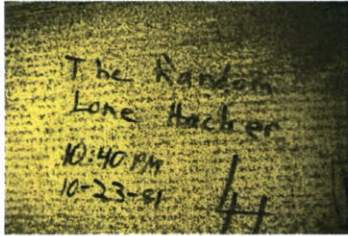 The Random
Lone Hacker
10:40 PM
10-23-81
4